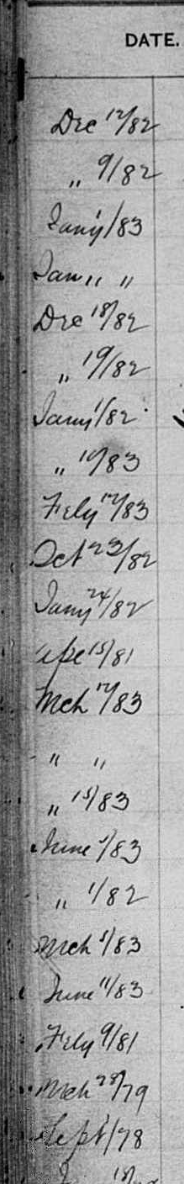 DATE.
Dec 12/82
„ 9/82
Jany 1/83
Jan „ „
Dec 18/82
„ 19/82
Jany 1/82
„ 10/83
Feby 12/83
Oct 23/82
Jany 24/82
Apl 15/81
Mch 12/83
„ „
„ 15/83
June 1/83
„ 1/82
Mch 1/83
June 11/83
Feby 9/81
Mch 28/79
Sept 1/78